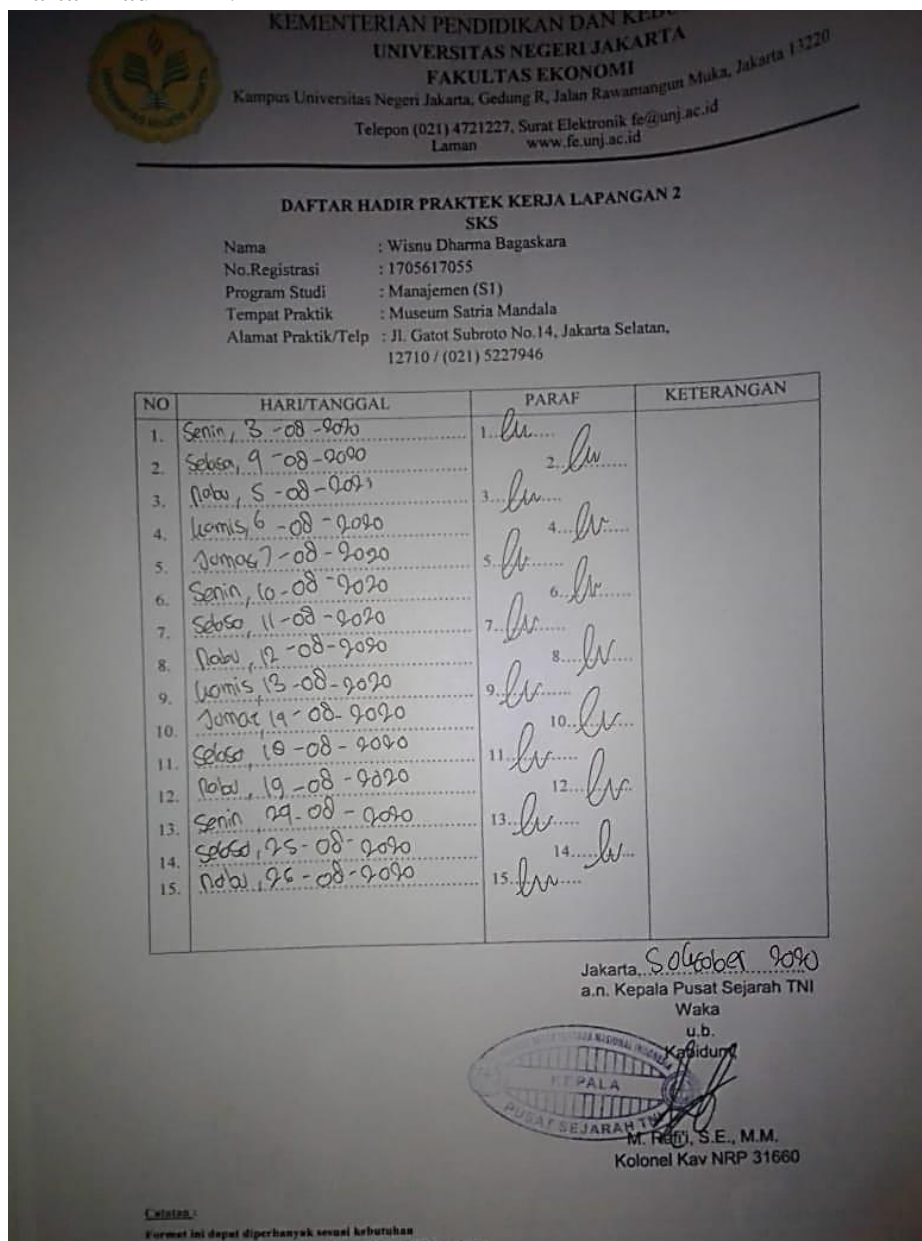 KEMENTERIAN PENDIDIKAN DAN
UNIVERSITAS NEGERI JAKARTA
FAKULTAS EKONOMI
Kampus Universitas Negeri Jakarta, Gedung R, Jalan Rawamangun Muka, Jakarta 13220
Telepon (021) 4721227, Surat Elektronik fe@unj.ac.id
Laman www.fe.unj.ac.id
DAFTAR HADIR PRAKTEK KERJA LAPANGAN 2
SKS
Nama : Wisnu Dharma Bagaskara
No.Registrasi : 1705617055
Program Studi : Manajemen (S1)
Tempat Praktik : Museum Satria Mandala
Alamat Praktik/Telp : Jl. Gatot Subroto No.14, Jakarta Selatan,
12710 / (021) 5227946
NO HARI/TANGGAL PARAF KETERANGAN
1. Senin, 3 -08 -2020 1.
2. Selasa, 4 -08-2020 2.
3. Rabu, 5 -08-2020 3.
4. Kamis, 6 -08 -2020 4.
5. Jumat 7 -08 -2020 5.
6. Senin, 10 -08 -2020 6.
7. Selasa, 11 -08 -2020 7.
8. Rabu, 12 -08-2020 8.
9. Kamis, 13 -08-2020 9.
10. Jumat 14 - 08- 2020 10.
11. Selasa, 18 -08 - 2020 11.
12. Rabu, 19 -08 -2020 12.
13. Senin 24 - 08 - 2020 13.
14. Selasa, 25 - 08 - 2020 14.
15. Rabu, 26 - 08 -2020 15.
Jakarta, 5 Oktober 2020
a.n. Kepala Pusat Sejarah TNI
Waka
u.b.
Kabidum
KEPALA
PUSAT SEJARAH TNI
M. Rafi'i, S.E., M.M.
Kolonel Kav NRP 31660
Catatan :
Format ini dapat diperbanyak sesuai kebutuhan